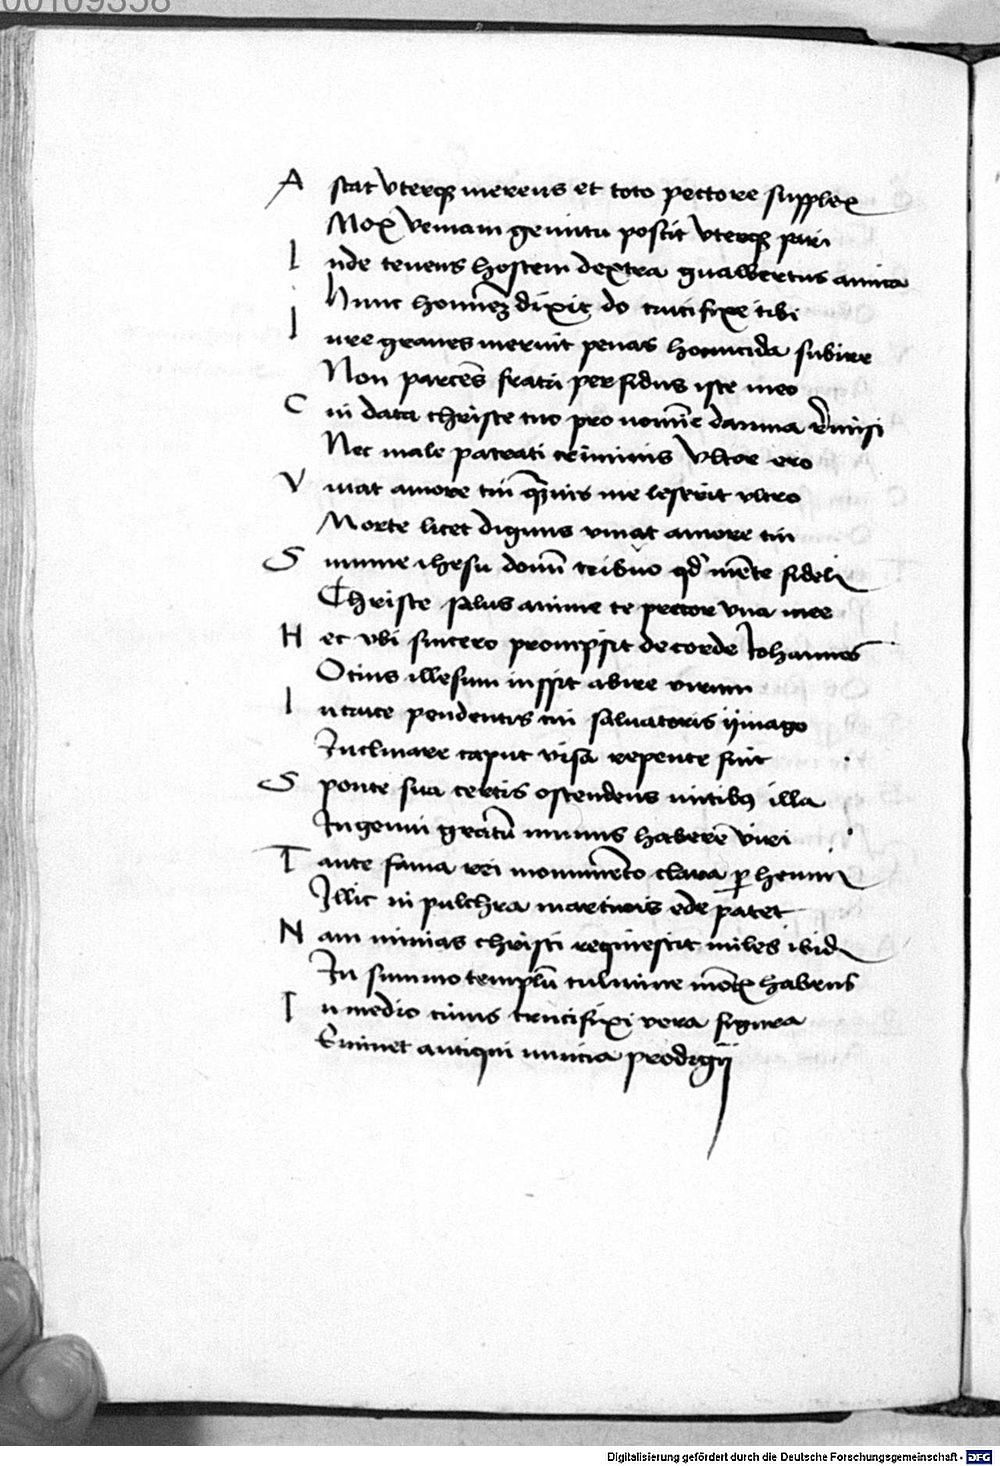 00109358
A stat vterqꝫ merens et toto pectore supplex
Mox veniam gemitu poscit vterqꝫ pari
I nde tenens hostem dextra gualbertus amica
Hunc hominē dixit do crucifixe tibi
I ure graues meruit penas homicida subire
Non parcēs fratri perfidus iste meo
C ui data christe tuo pro nomīe damna r̄misi
Nec male patrati criminis vltor ero
V iuat amore tui q̄muis me leserit vltro
Morte licet dignus viuat amore tui
S umme ihesu donū tribuo qd̄ mēte fideli
Christe salus anime te precor vna mee
H ec vbi sincero prompsit de corde Iohannes
Ocius illesum iussit abire virum
I n cruce pendentis cui saluatoris ijmago
Inclinare caput visa repente fuit
S ponte sua certis ostendens nutibꝰ illa
Ingenui gratū munus haberē viri
T ante fama rei monumēto clara ꝑhenni
Illic in pulchra martiris ede patet
N am minias christi requiescit miles ibidē
In summo templū culmine mōtꝭ habens
I n medio cuius crucifixi vera figura
Eminet antiqui nuncia prodigij
Digitalisierung gefördert durch die Deutsche Forschungsgemeinschaft - DFG